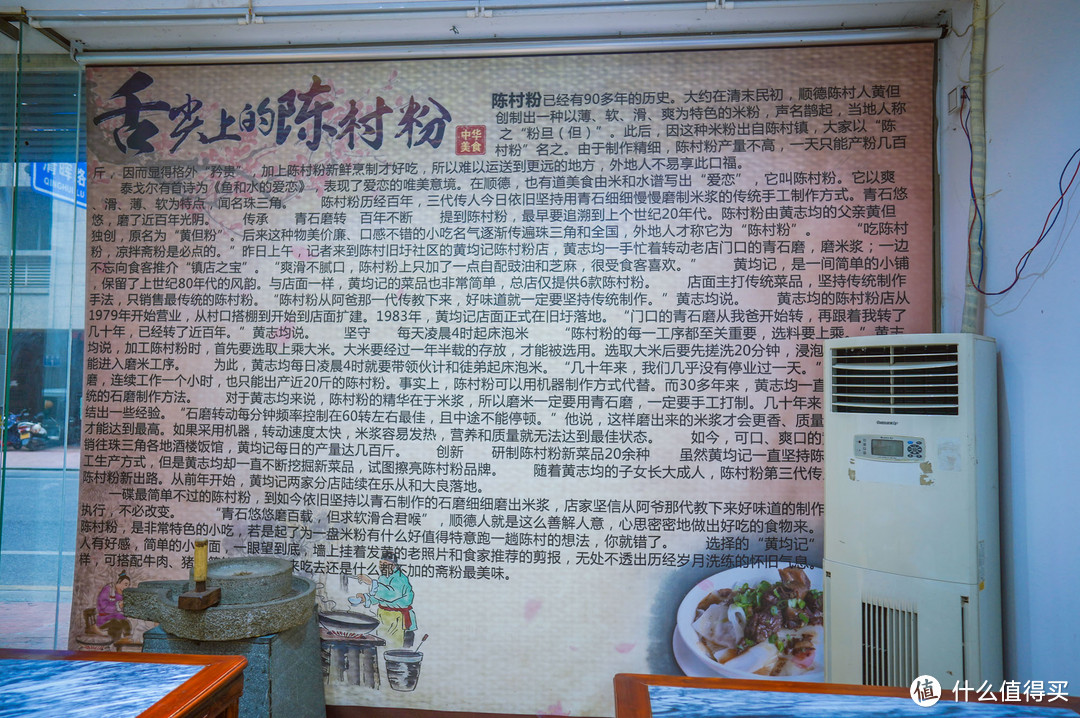 舌尖上的陈村粉
中华
美食
陈村粉已经有90多年的历史。大约在清末民初，顺德陈村人黄但
创制出一种以薄、软、滑、爽为特色的米粉，声名鹊起，当地人称
之“粉旦（但）”。此后，因这种米粉出自陈村镇，大家以“陈
村粉”名之。由于制作精细，陈村粉产量不高，一天只能产粉几百
斤，因而显得格外“矜贵”，加上陈村粉新鲜烹制才好吃，所以难以运送到更远的地方，外地人不易享此口福。
泰戈尔有首诗为《鱼和水的爱恋》，表现了爱恋的唯美意境。在顺德，也有道美食由米和水谱写出“爱恋”，它叫陈村粉。它以爽
、滑、薄、软为特点，闻名珠三角。 陈村粉历经百年，三代传人今日依旧坚持用青石细细慢慢磨制米浆的传统手工制作方式。青石悠
悠，磨了近百年光阴。 传承 青石磨转 百年不断 提到陈村粉，最早要追溯到上个世纪20年代。陈村粉由黄志均的父亲黄但
独创，原名为“黄但粉”。后来这种物美价廉、口感不错的小吃名气逐渐传遍珠三角和全国，外地人才称它为“陈村粉”。 “吃陈村
粉，凉拌斋粉是必点的。”昨日上午，记者来到陈村旧圩社区的黄均记陈村粉店，黄志均一手忙着转动老店门口的青石磨，磨米浆；一边
不忘向食客推介“镇店之宝”。“爽滑不腻口，陈村粉上只加了一点自配豉油和芝麻，很受食客喜欢。” 黄均记，是一间简单的小铺
，保留了上世纪80年代的风韵。与店面一样，黄均记的菜品也非常简单，总店仅提供6款陈村粉。 店面主打传统菜品，坚持传统制作
手法，只销售最传统的陈村粉。“陈村粉从阿爸那一代传教下来，好味道就一定要坚持传统制作。”黄志均说。 黄志均的陈村粉店从
1979年开始营业，从村口搭棚到开始到店面扩建。1983年，黄均记店面正式在旧圩落地。“门口的青石磨从我爸开始转，再跟着我转了
几十年，已经转了近百年。”黄志均说。 坚守 每天凌晨4时起床泡米 “陈村粉的每一工序都至关重要，选料要上乘。”黄志
均说，加工陈村粉时，首先要选取上乘大米。大米要经过一年半载的存放，才能被选用。选取大米后要先搓洗20分钟，浸泡
能进入磨米工序。 为此，黄志均每日凌晨4时就要带领伙计和徒弟起床泡米。“几十年来，我们几乎没有停业过一天。”
磨，连续工作一个小时，也只能出产近20斤的陈村粉。事实上，陈村粉可以用机器制作方式代替。而30多年来，黄志均一直
统的石磨制作方法。 对于黄志均来说，陈村粉的精华在于米浆，所以磨米一定要用青石磨，一定要手工打制。几十年来
结出一些经验。“石磨转动每分钟频率控制在60转左右最佳，且中途不能停顿。”他说，这样磨出来的米浆才会更香、质量
才能达到最高。如果采用机器，转动速度太快，米浆容易发热，营养和质量就无法达到最佳状态。 如今，可口、爽口的
销往珠三角各地酒楼饭馆，黄均记每日的产量达几百斤。 创新 研制陈村粉新菜品20余种 虽然黄均记一直坚持陈
工生产方式，但是黄志均却一直不断挖掘新菜品，试图擦亮陈村粉品牌。 随着黄志均的子女长大成人，陈村粉第三代传
陈村粉新出路。从前年开始，黄均记两家分店陆续在乐从和大良落地。
一碟最简单不过的陈村粉，到如今依旧坚持以青石制作的石磨细细磨出米浆，店家坚信从阿爷那代教下来好味道的制作
执行，不必改变。 “青石悠悠磨百载，但求软滑合君喉”，顺德人就是这么善解人意，心思密密地做出好吃的食物来。
陈村粉，是非常特色的小吃，若是起了为一盘米粉有什么好值得特意跑一趟陈村的想法，你就错了。 选择的“黄均记”
人有好感，简单的小 面，一眼望到底，墙上挂着发黄的老照片和食家推荐的剪报，无处不透出历经岁月洗练的怀旧气息。
样，可搭配牛肉、猪 来吃去还是什么都不加的斋粉最美味。
QINGHUI LU
值 什么值得买